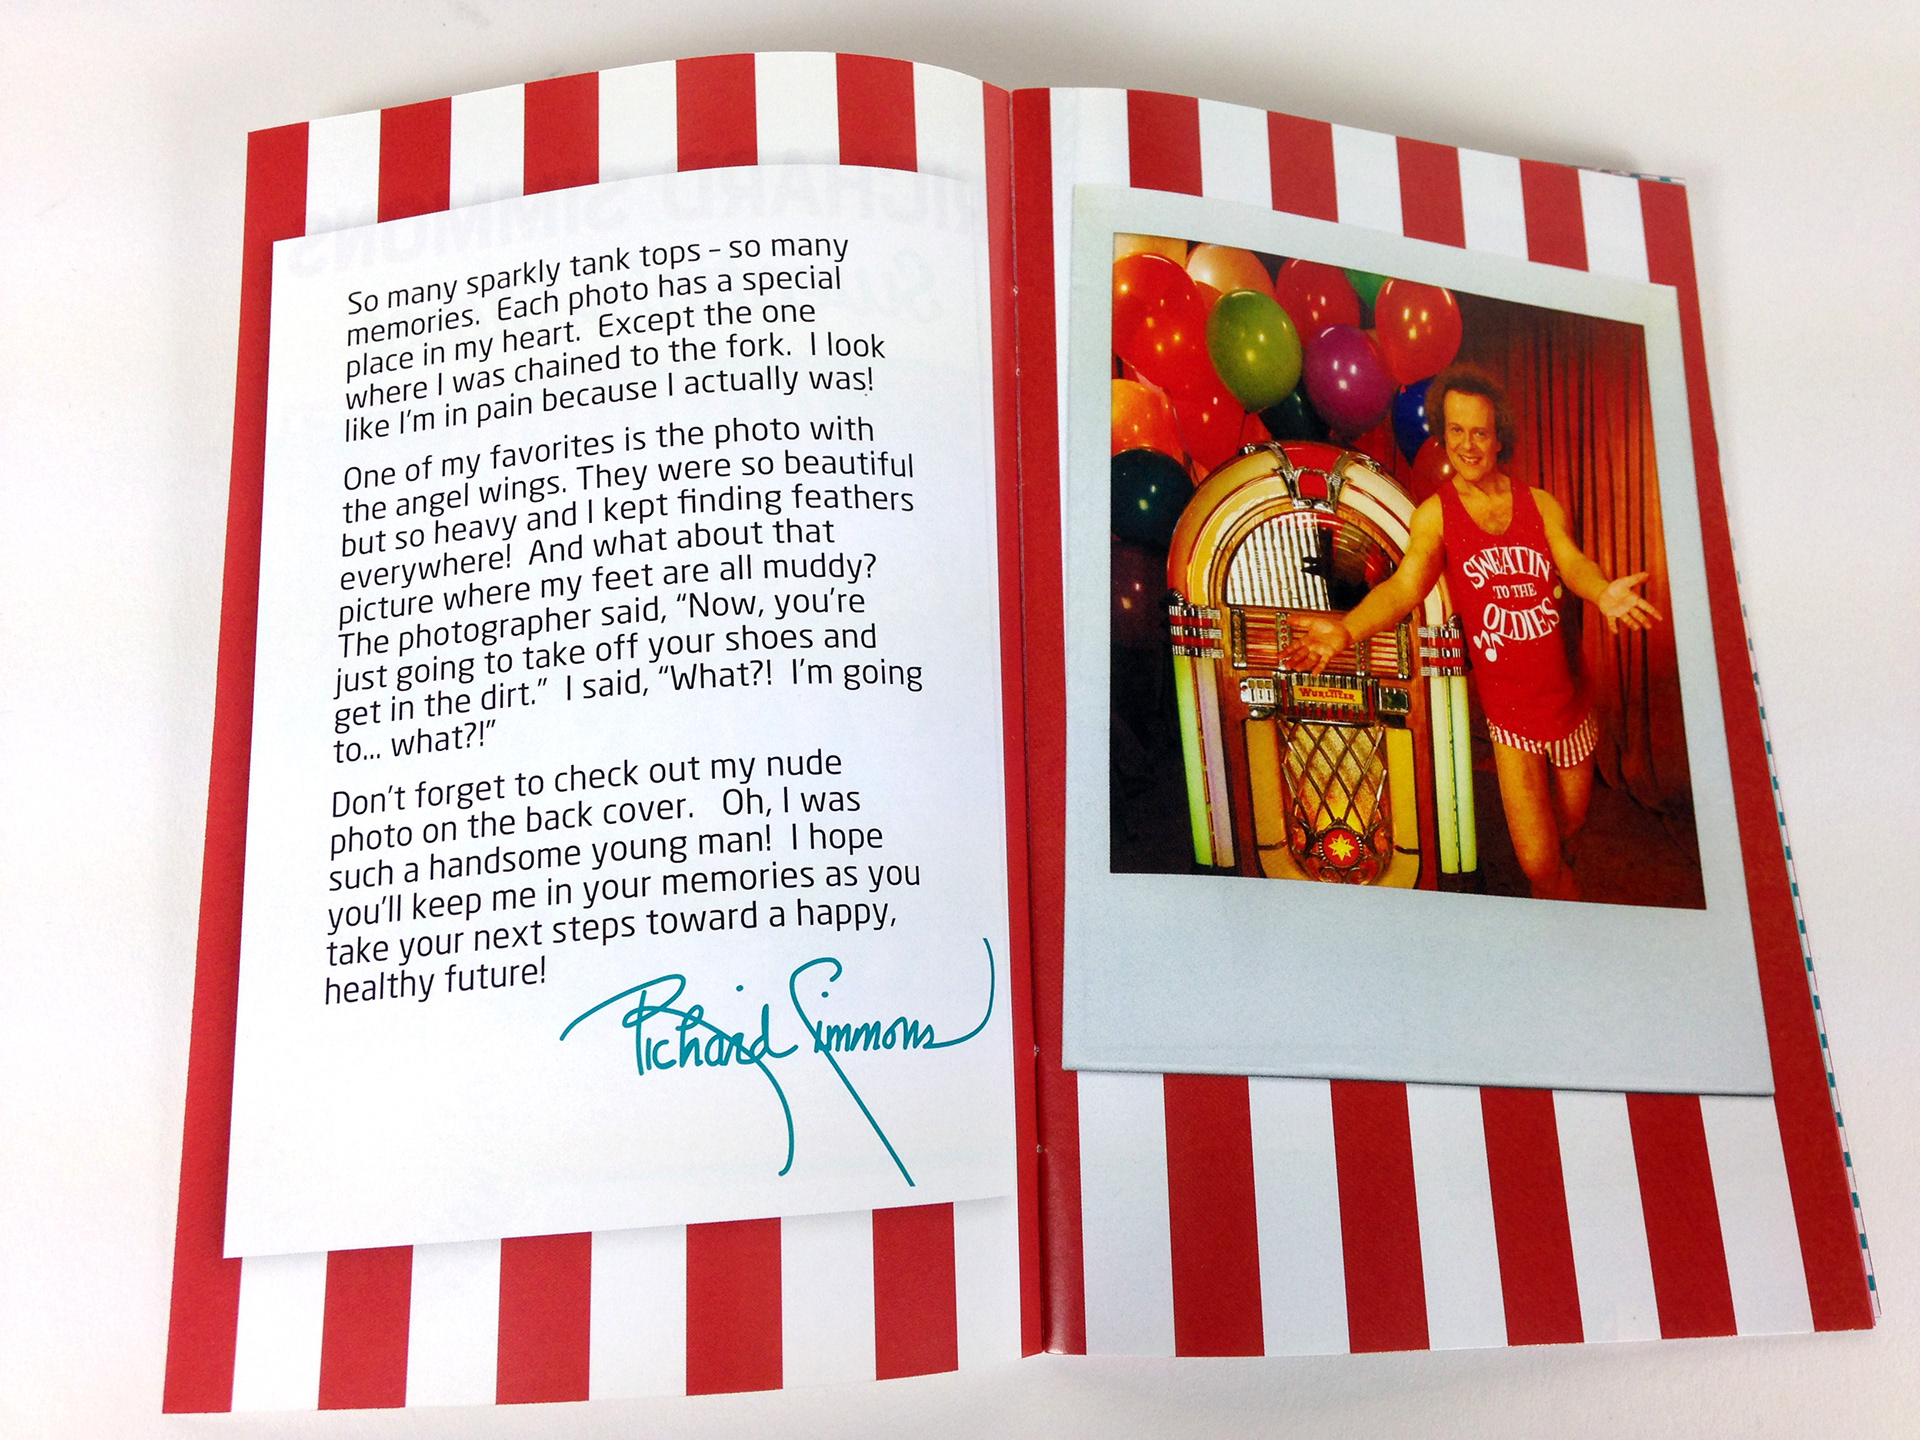 So many sparkly tank tops – so many
memories.  Each photo has a special
place in my heart.  Except the one
where I was chained to the fork.  I look
like I'm in pain because I actually was!
One of my favorites is the photo with
the angel wings. They were so beautiful
but so heavy and I kept finding feathers
everywhere!  And what about that
picture where my feet are all muddy?
The photographer said, “Now, you're
just going to take off your shoes and
get in the dirt.”  I said, “What?!  I'm going
to... what?!”
Don't forget to check out my nude
photo on the back cover.   Oh, I was
such a handsome young man!  I hope
you'll keep me in your memories as you
take your next steps toward a happy,
healthy future!
Richard Simmons
SWEATIN'
TO THE
OLDIES
WURLITZER